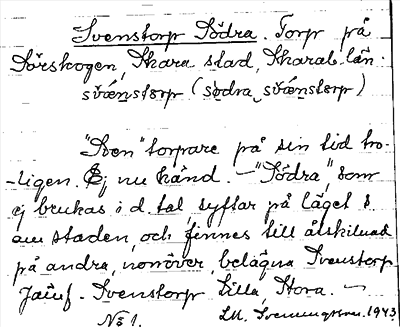 Svenstorp Södra. Torp på
Sörskogen, Skara stad, Skarab. län.
svä́ǹstɔrp (sødra svä́ǹstɔrp)
"Sven" torpare på sin tid tro-
-ligen. Ej nu känd. – "Södra", som
ej brukas i d. tal, syftar på läget s.
om staden, och finnes till åtskilnad
på andra, norröver, belägna Svenstorp
Jämf. Svenstorp Lilla, Stora. –
No 1. LM. Svenungsson. 1943